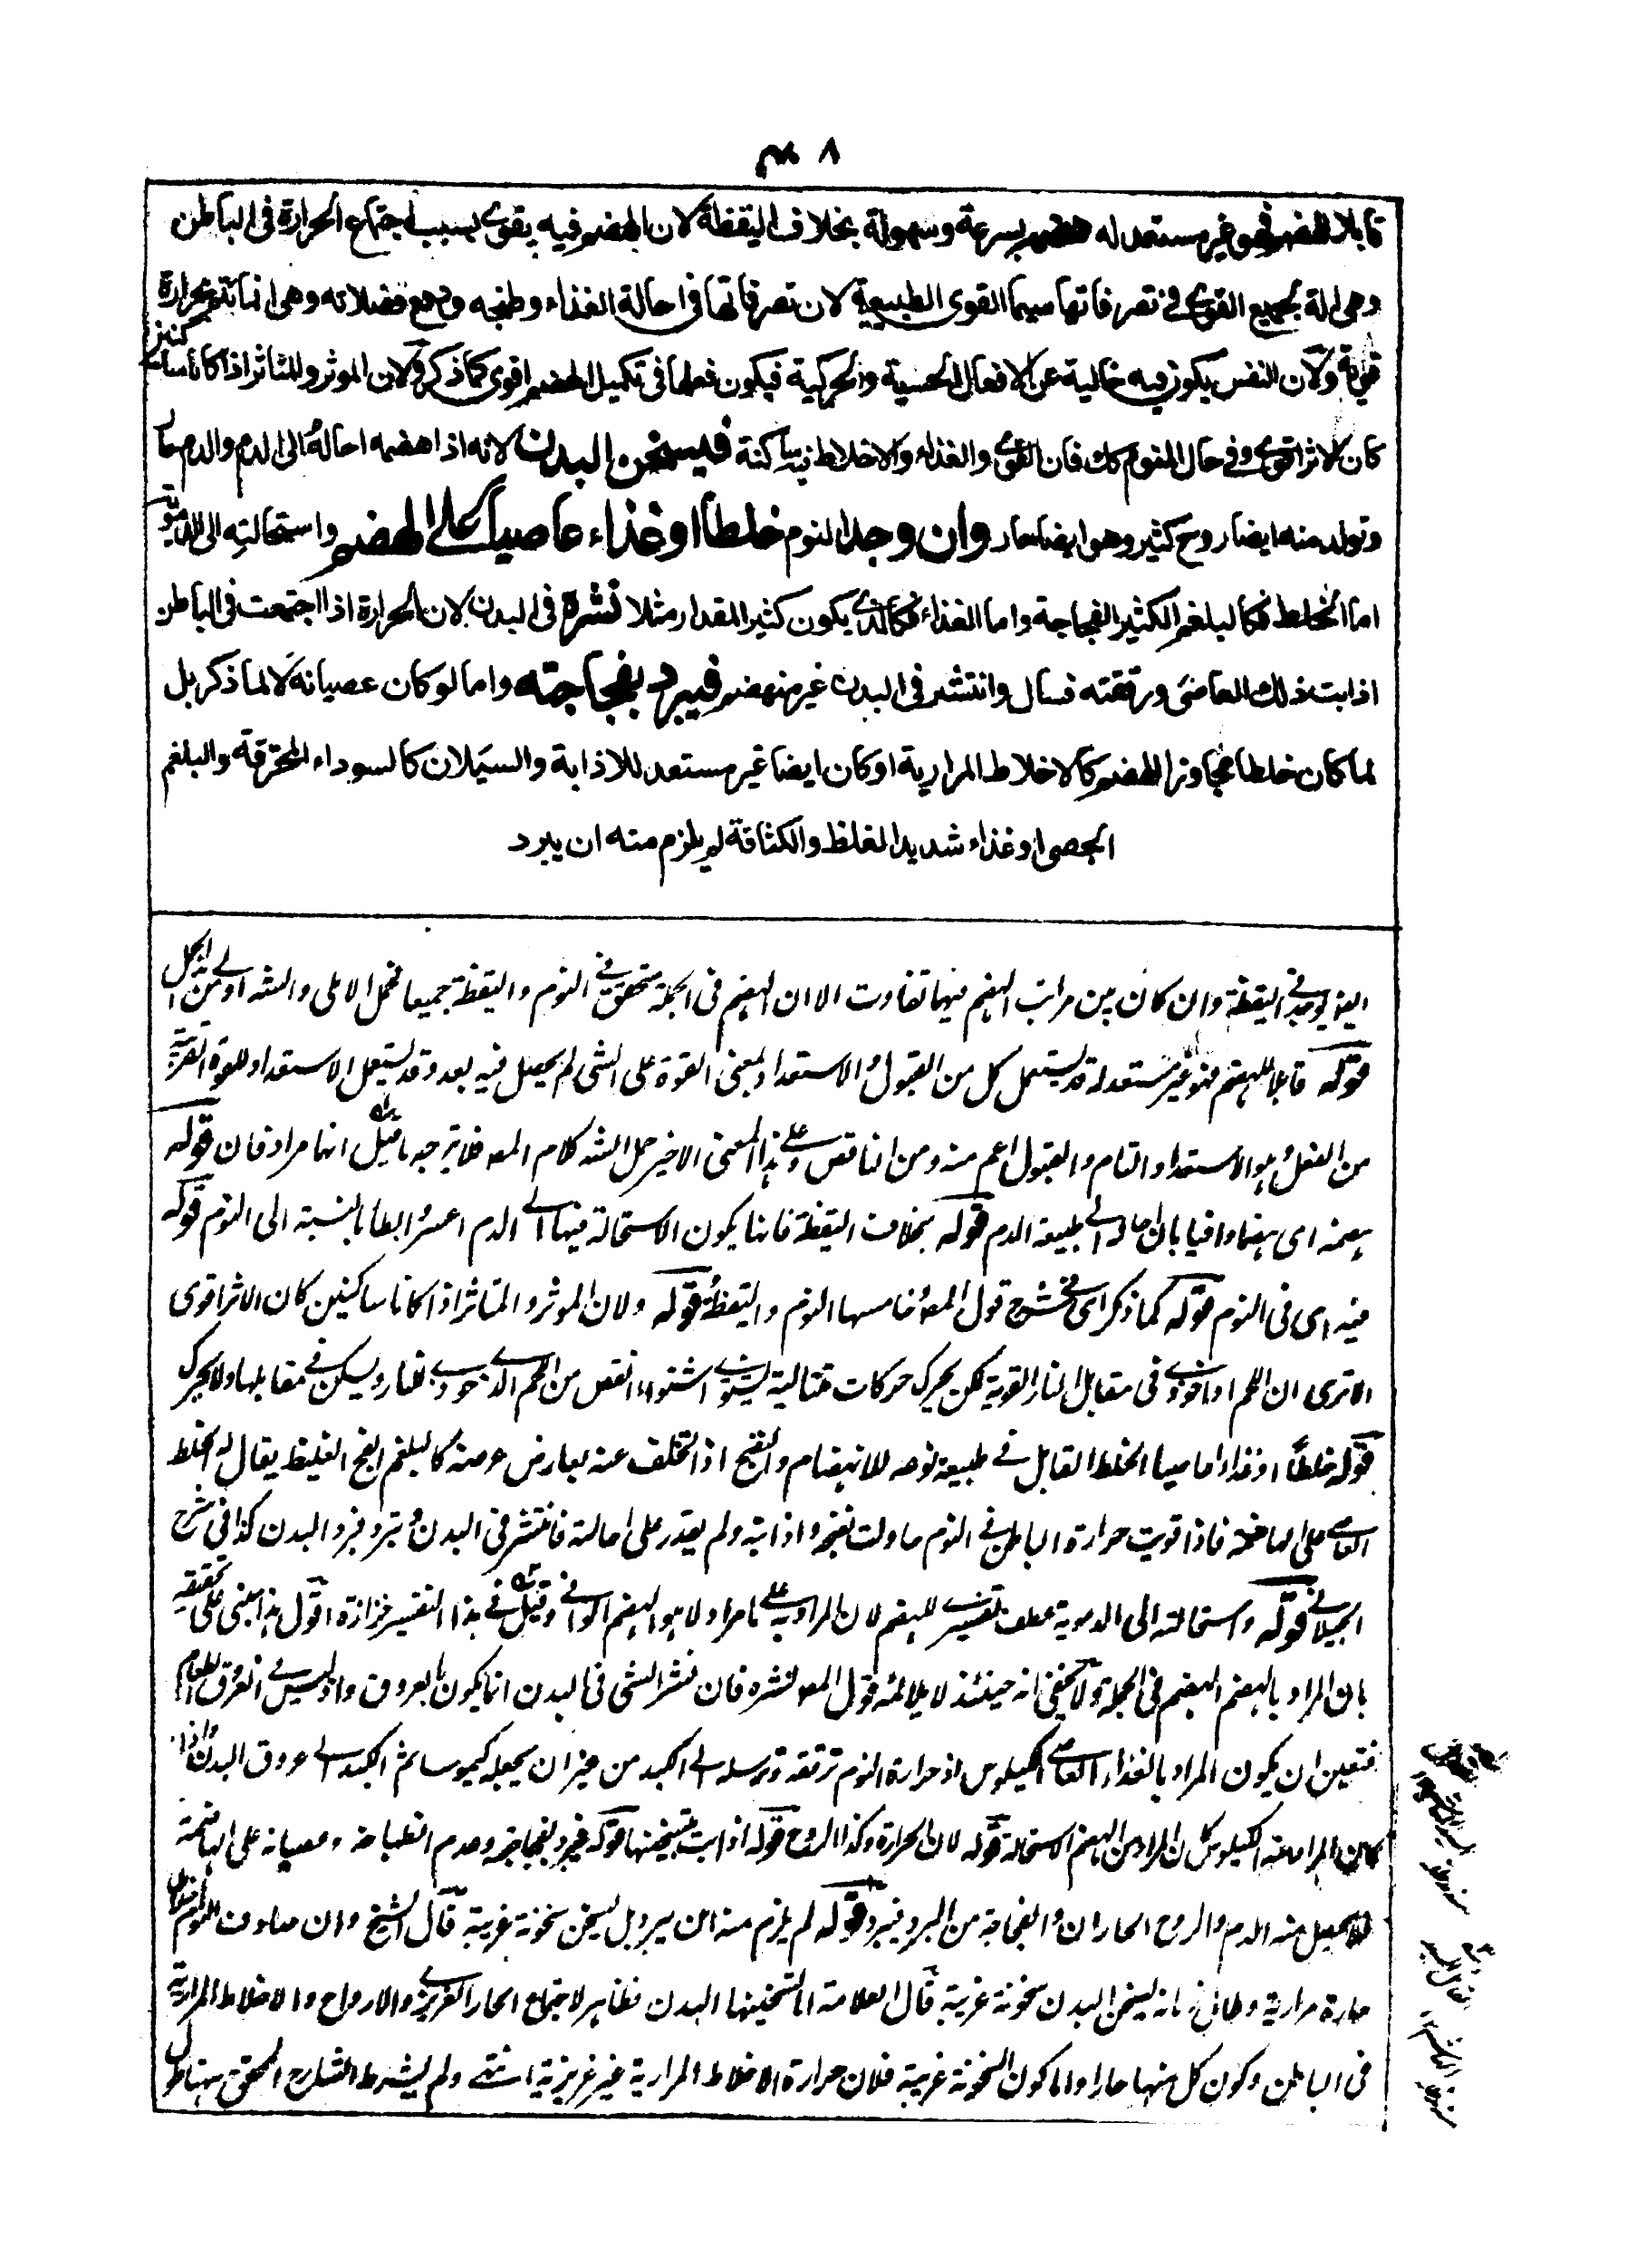 ٨ ٣
قابلا للهضم فهو غير مستعد له هضمه بسرعة وسهولة بخلاف اليقظة لان الهضم فيه يقوى بسبب اجتماع الحرارة فى الباطن
وهى الة لجميع القوى فى تصرفاتها سيما القوى الطبيعية لان تصرفاتها فى احالة الغذاء وطبخه ودفع فضلاته وهى انما يتم بحرارة
قوية ولان النفس يكون فيه خالية عن الافعال الحسية والحركية فيكون فعلها فى تكميل الهضم اقوى كما ذكر ولان الموثر والمتاثر اذا كانا ساكنين
كان الاثر اقوى وفى حال النوم كك فان القوى والغذاء والاخلاط فيه ساكنة فيسخن البدن لانه اذا هضمه احاله الى الدم والدم حار
وتولد منه ايضا روح كثير وهو ايضا حار وان وجد النوم خلطا او غذاء عاصيا على الهضم واستحالته الى الدموية
اما الخلط فكالبلغم الكثير الفجاجة واما الغذاء فكالذى يكون كثير المقدار مثلا نشره فى البدن لان الحرارة اذا اجتمعت فى الباطن
اذابت ذلك العاصى ورققته فسال وانتشر فى البدن غير منهضم فيبرد بفجاجته واما لو كان عصيانه لا لما ذكر بل
لما كان خلطا مجاوزا للهضم كالاخلاط المرارية او كان ايضا غير مستعد للاذابة والسيلان كالسوداء المحترقة والبلغم
الجصى او غذاء شديد الغلظ والكثافة لم يلزم منه ان يبرد
اليقظة وان كان بين مراتب الهضم فيهما تفاوت الا ان الهضم فى الجملة متحقق فى النوم واليقظة جميعا
قوله قابلا للهضم فهو غير مستعد له قد يستعمل كل من القبول والاستعداد بمعنى القوة على الشى لم يحصل فيه بعد وقد يستعمل الاستعداد للقوة القريبة
من الفعل وهو الاستعداد التام والقبول اعم منه ومن الناقص وعلى هذا المعنى الاخير حمل الشه كلام المص فلا يرد ما قيل انهما مرادفان قوله
هضمه اى هضما وافيا بان احاله الى طبيعة الدم قوله بخلاف اليقظة فانها يكون الاستحالة فيها الى الدم اعسر وابطا بالنسبة الى النوم قوله
فيه اى فى النوم قوله كما ذكر اى فى شرح قول المص خامسها النوم واليقظة قوله ولان الموثر والمتاثر اذا كانا ساكنين كان الاثر اقوى
الا ترى ان اللحم اذا حوذى فى مقابل النار القوية لكن يحرك حركات متتالية يستوى اشتواء انقص من اللحم الذى حوذى للنار ويسكن فى مقابلها ولا يحرك
قوله خلطا او غذاء عاصيا الخلط القابل فى طبيعة نوعه للانهضام والنضج اذا تخلف عنه لعارض عرضه كالبلغم الفج الغليظ يقال له الخلط
العاصى على الهاضمة فاذا قويت حرارة الباطن فى النوم حاولت نضجه واذابته ولم يقدر على احالته فانتشر فى البدن وتبرد فبرد البدن كذا فى شرح
الجيلانى قوله واستحالته الى الدموية عطف تفسيرى للهضم لان المراد به على ما مراد لا هو الهضم الوافى وقيل فى هذا التفسير حزازة اقول هذا مبنى على تحققه
بان المراد بالهضم الهضم فى الجملة ولا يخفى انه حينئذ لا يلائمه قول المص نشره فان نشر الشى فى البدن انما يكون بالعروق واذ ليس فى العروق الطعام
فتعين ان يكون المراد بالغذاء العاصى الكيلوس اذ حرارة النوم ترققه وترسله الى الكبد من غير ان يجعله كيموسا ثم الكبد الى عروق البدن واذا
كان المراد منه الكيلوس كان المراد من الهضم الاستحالة قوله لان الحرارة وكذا الروح قوله اذابت بتسخينها قوله فيبرد بفجاجته وعدم انطباخه وعصيانه على الهاضمة
لا يحصل منه الدم والروح الحاران والفجاجة من البرد فيبرد قوله لم يلزم منه ان يبرد بل يسخن سخونة غريبة قال الشيخ وان صادف النوم اخلاطا
حارة مرارية وطال زمانه ليسخن البدن سخونة غريبة قال العلامة اما تسخينها البدن فظاهر لاجتماع الحار الغريزى والارواح والاخلاط المرارية
فى الباطن وكون كل منها حارا واما كون السخونة غريبة فلان حرارة الاخلاط المرارية غير غريزية انتهى ولم يشترط الشارح المحقق ههنا طول